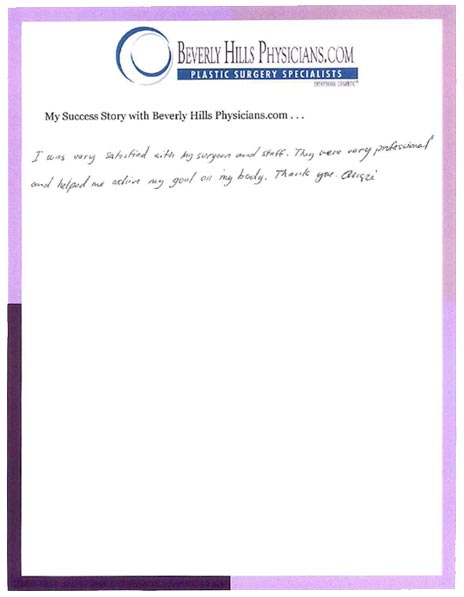 BEVERLY HILLS PHYSICIANS.COM
PLASTIC SURGERY SPECIALISTS
My Success Story with Beverly Hills Physicians.com . . .
I was very satisfied with my surgeon and staff. They were very professional
and helped me achive my goal on my body. Thank you.